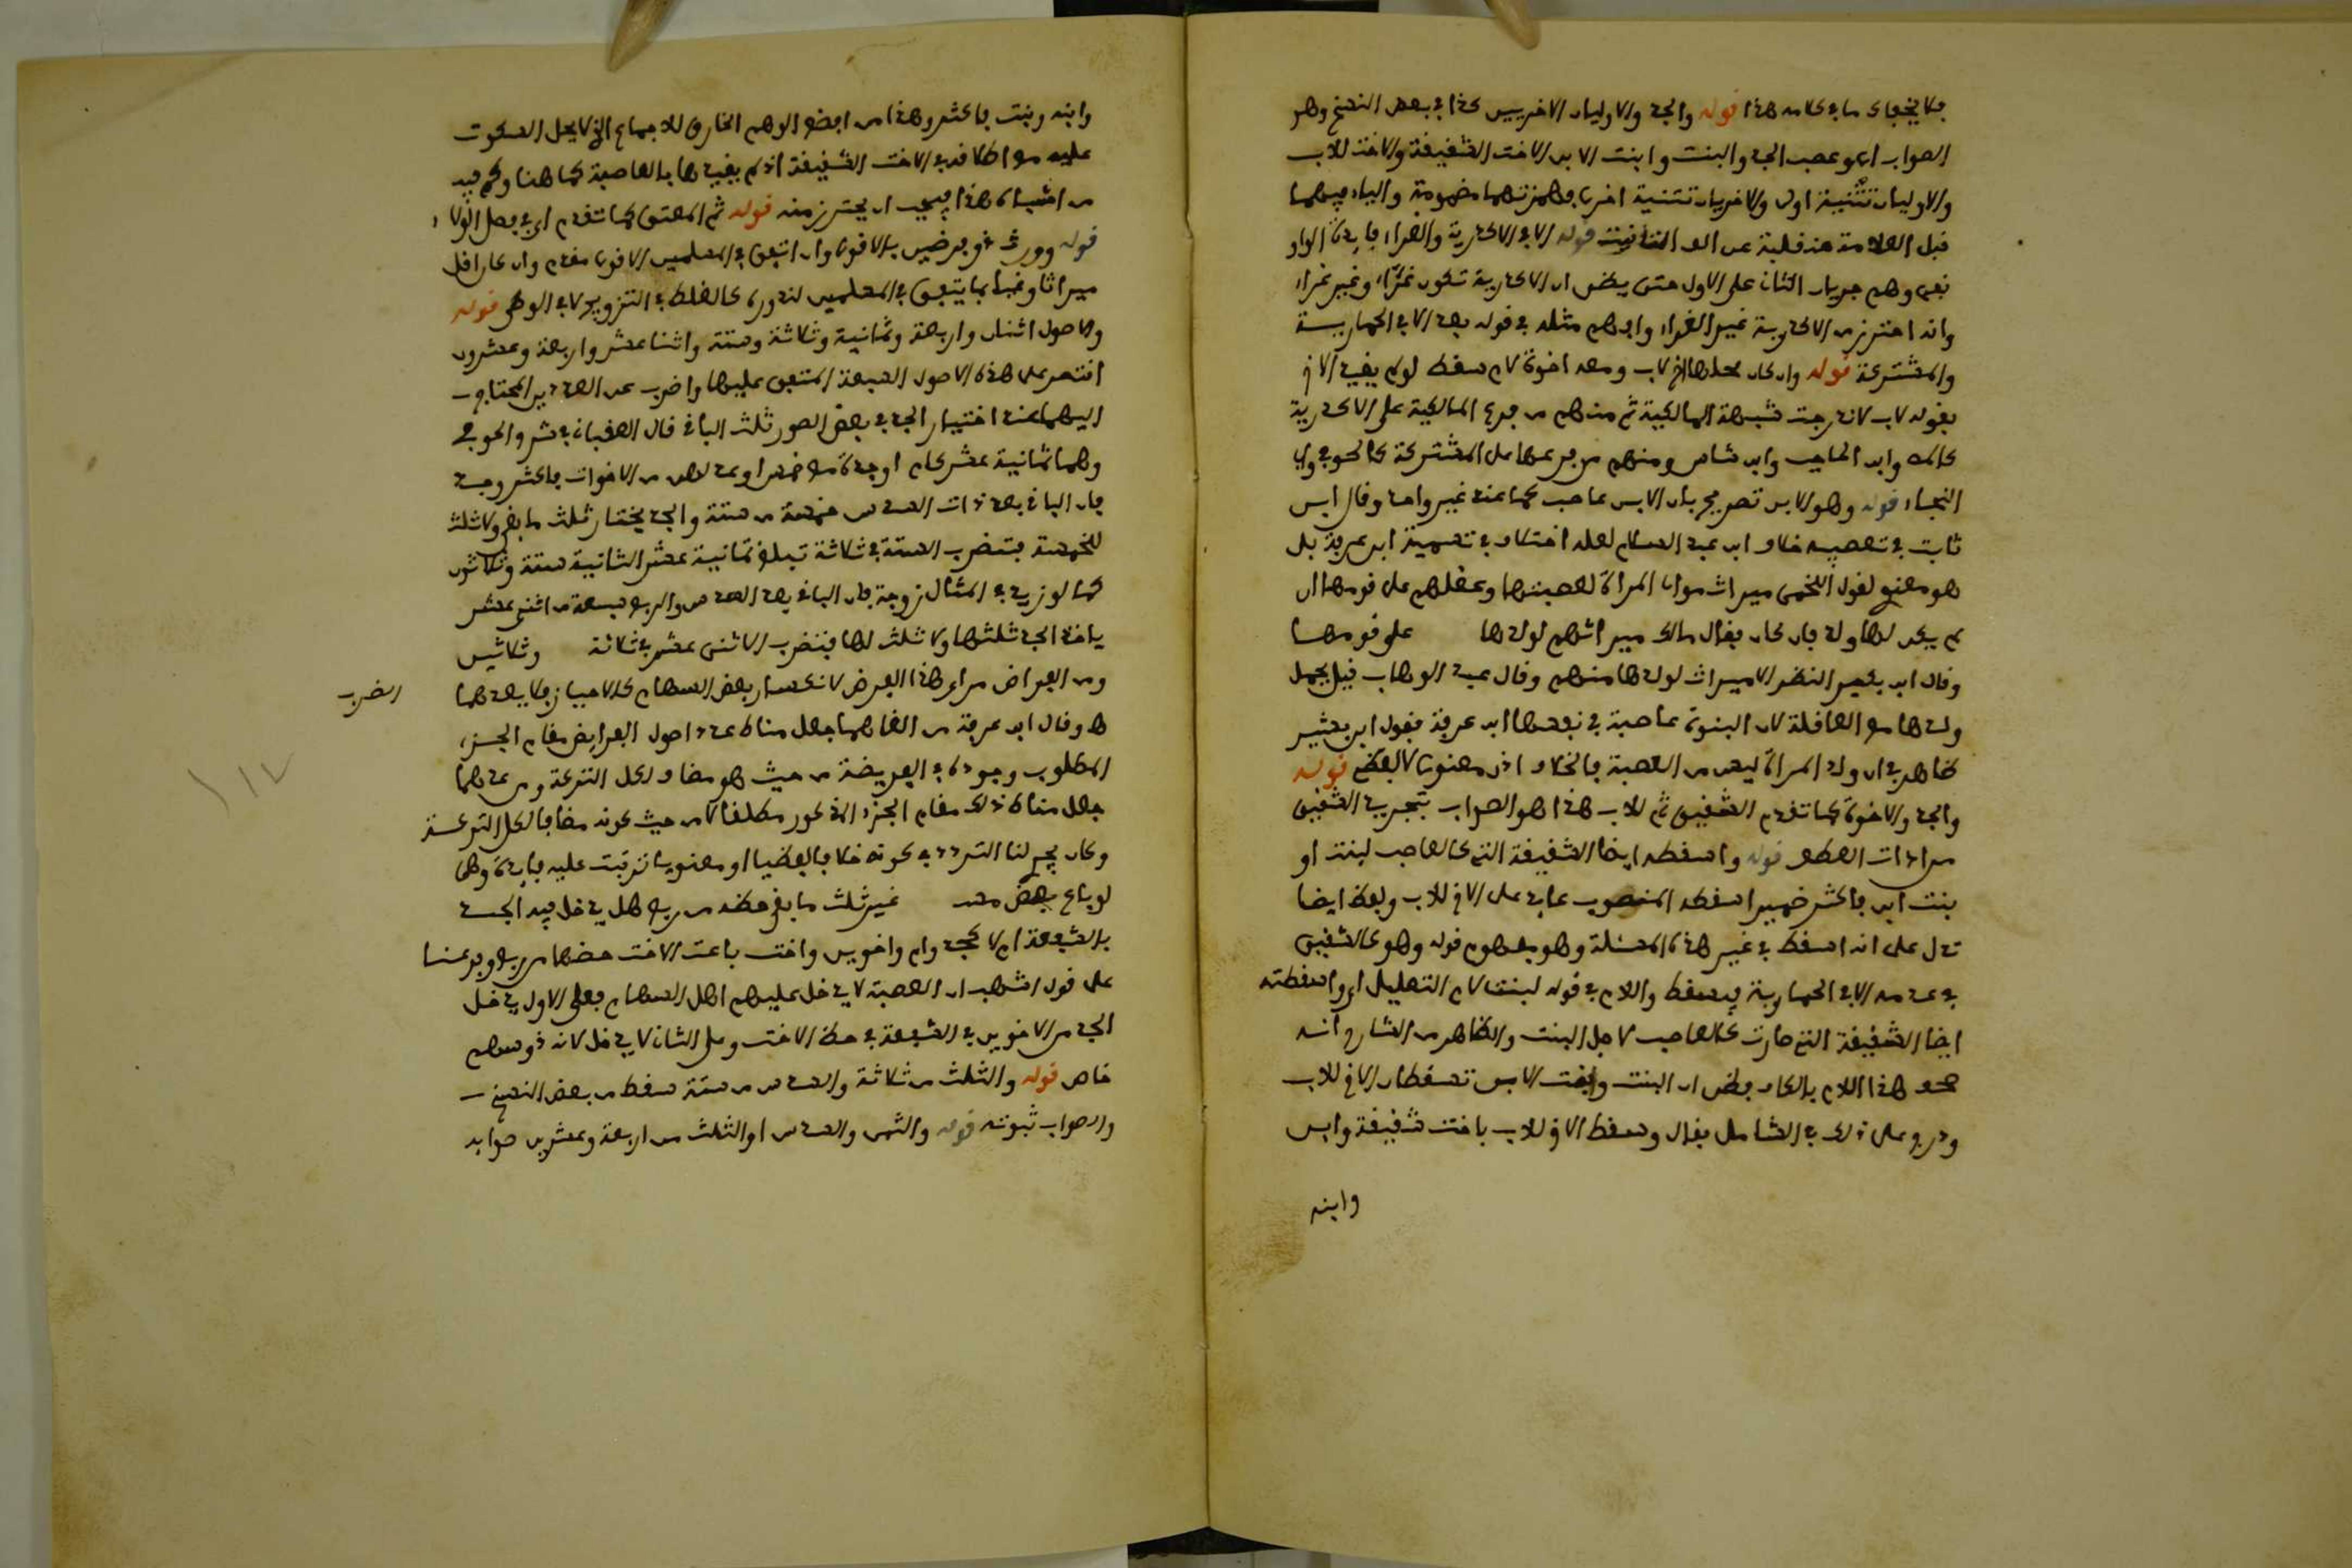 فلا يخفاك ما في كلامه هذا قوله والجد والاوليان الاخريين كذا في بعض النسخ وهو
الصواب اي وعصب الجد والبنت وابنت الابن الاخت الشقيقة والاخت للاب
والاوليان تثنية اولى والاخريان تثنية اخرى فهمزتهما مضمومة والياء فيهما
قبل العلامة منقلبة عن الف التانيث قوله الا في الاكدرية والغراء زيادة الواو
نعم وهم جريان الثاني على الاول حتى يظن ان الاكدرية تكون غراء وغير غراء
وانه احترز من الاكدرية غير الغراء واوهم مثله في قوله بعد الا في الحمارية
والمشتركة قوله وان كان محلها اخ لاب ومعه اخوة لام سقط لو لم يقيد الاخ
بقوله لاب لاندرجت شبهة المالكية ثم منهم من فرع المالكية على الاكدرية
كالك وابن الحاجب وابن شاس ومنهم من فرعها على المشتركة كالحوفي وابي
النجاء قوله وهو الابن تصريح بان الابن عاصب كما عند غير واحد وقال ابن
ثابت في تعصيبه خلاف ابن عبد السلام لعله اختلاف في تسمية ابن عرفة بل
هو معنوي لقول اللخمي ميراث موالي المراة لعصبتها وعقلهم على قومها ان
لم يكن لها ولد فان كان فقال مالك ميراثهم لولدها على قومها
وقال ابن بشير النظر لا ميراث لولدها منهم وقال عبد الوهاب قيل يحمل
ولدها مع العاقلة لان البنوة عاصبة في نفسها ابن عرفة فقول ابن بشير
ظاهر في ان ولد المراة ليس من العصبة فالخلاف اذن معنوي لا لفظي قوله
والجد والاخوة كما تقدم الشقيق ثم للاب هذا هو الصواب بتجريد الشقيق
من اداة العطف قوله واسقطه ايضا الشقيقة التي كالعاصب لبنت او
بنت ابن فاكثر ضمير اسقطه المنصوب عايد على الاخ للاب ولفظ ايضا
تدل على انه اسقط في غير هذه المسئلة وهو مفهوم قوله وهو كالشقيق
في عدمه الا في الحمارية فيسقط واللام في قوله لبنت لام التعليل اي واسقطته
ايضا الشقيقة التي صارت كالعاصب لاجل البنت والظاهر من الشارح انه
صحف هذا اللام بالكاف فظن ان البنت وابنت الابن تسقطان الاخ للاب
ودرج على ذلك في الشامل فقال وسقط الاخ للاب باخت شقيقة وابن
وابنه
وابنه وبنت فاكثر وهذا من افضع الوهم الخارق للاجماع الذي لا يحل السكوت
عليه مع اطلاقه في الاخت الشقيقة اذ لم يقيدها بالعاصبة كما هنا ولم فيه
من اشباه هذا فيجب ان يحترز منه قوله ثم المعتق كما تقدم اي في فصل الولاء
قوله وورث ذو فرضين بالاقوى وان اتفق في المسلمين الاقوى مقدم وان كان اقل
ميراثا وغبا بما يتفق في المسلمين لندوره كالغلط في التزويج لا في الوطي قوله
والاصول اثنان واربعة وثمانية وثلاثة وستة واثنا عشر واربعة وعشرون
اقتصر على هذه الاصول السبعة المتفق عليها واضرب عن العددين المحتاج
اليهما عند اختيار الجد في بعض الصور ثلث الباقي قال العقباني في شرح الحوفي
وهما ثمانية عشر كام او جدة مع خمس اوعدلهن من الاخوات فاكثر وجد
فان الباقي بعد ذات السدس خمسة من ستة والجد يختار ثلث ما بقي ولا ثلث
للخمسة فتضرب الستة في ثلاثة تبلغ ثمانية عشر الثانية ستة وثلاثون
كما لو زيد في المثال زوجة فان الباقي بعد السدس والربع سبعة من اثني عشر
ياخذ الجد ثلثها ولا ثلث لها فتضرب الاثني عشر في ثلاثة وثلاثين
ومن الفراض من راى هذا الفرض لانكسار بعض السهام كالاحياز فلا يعدهما
الضرب
ه وقال ابن عرفة من الغاهما جعل مناط عدد اصول الفرايض مقام الجزء
المطلوب وجوده في الفريضة من حيث هو مضاف لكل التركة ومن عدهما
جعل مناط ذلك مقام الجزء المذكور مطلقا لا من حيث كونه مضافا لكل التركة
وكان يجري لنا التردد في كونه خلافا لفظيا او معنويا تترتب عليه فايدة وهي
لو باع بعض مستحق غير ثلث ما بقي حظه من ربع هل يدخل فيه الجد
بالشفعة ام لا كجد وام واخوين واخت باعت الاخت حضها من ربع وفرعنا
على قول اشهب ان العصبة لا يدخل عليهم اهل السهام فعلى الاول يدخل
الجد مع الاخوين في الشفعة في حظ الاخت وعلى الثاني لا يدخل لانه ذو سهم
خاص قوله والثلث من ثلاثة والسدس من ستة سقط من بعض النسخ
والصواب ثبوته قوله والثمن والسدس او الثلث من اربعة وعشرين صوابه
١١٧